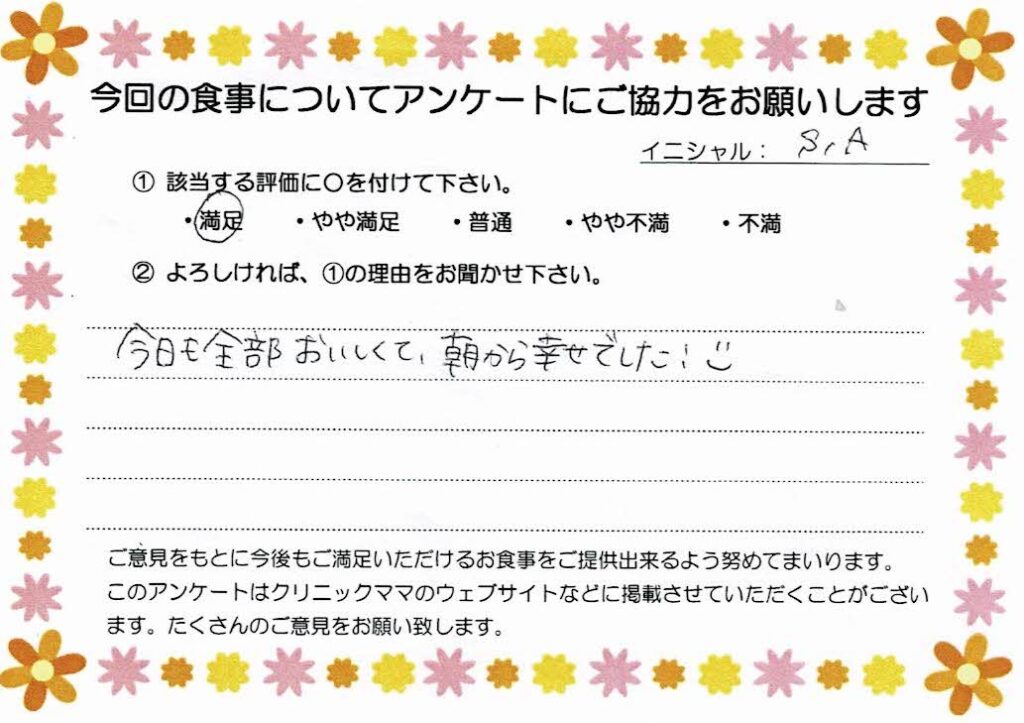 今回の食事についてアンケートにご協力をお願いします
イニシャル： S, A
① 該当する評価に〇を付けて下さい。
・満足 ・やや満足 ・普通 ・やや不満 ・不満
② よろしければ、①の理由をお聞かせ下さい。
今日も全部おいしくて、朝から幸せでした！
ご意見をもとに今後もご満足いただけるお食事をご提供出来るよう努めてまいります。
このアンケートはクリニックママのウェブサイトなどに掲載させていただくことがござい
ます。たくさんのご意見をお願い致します。